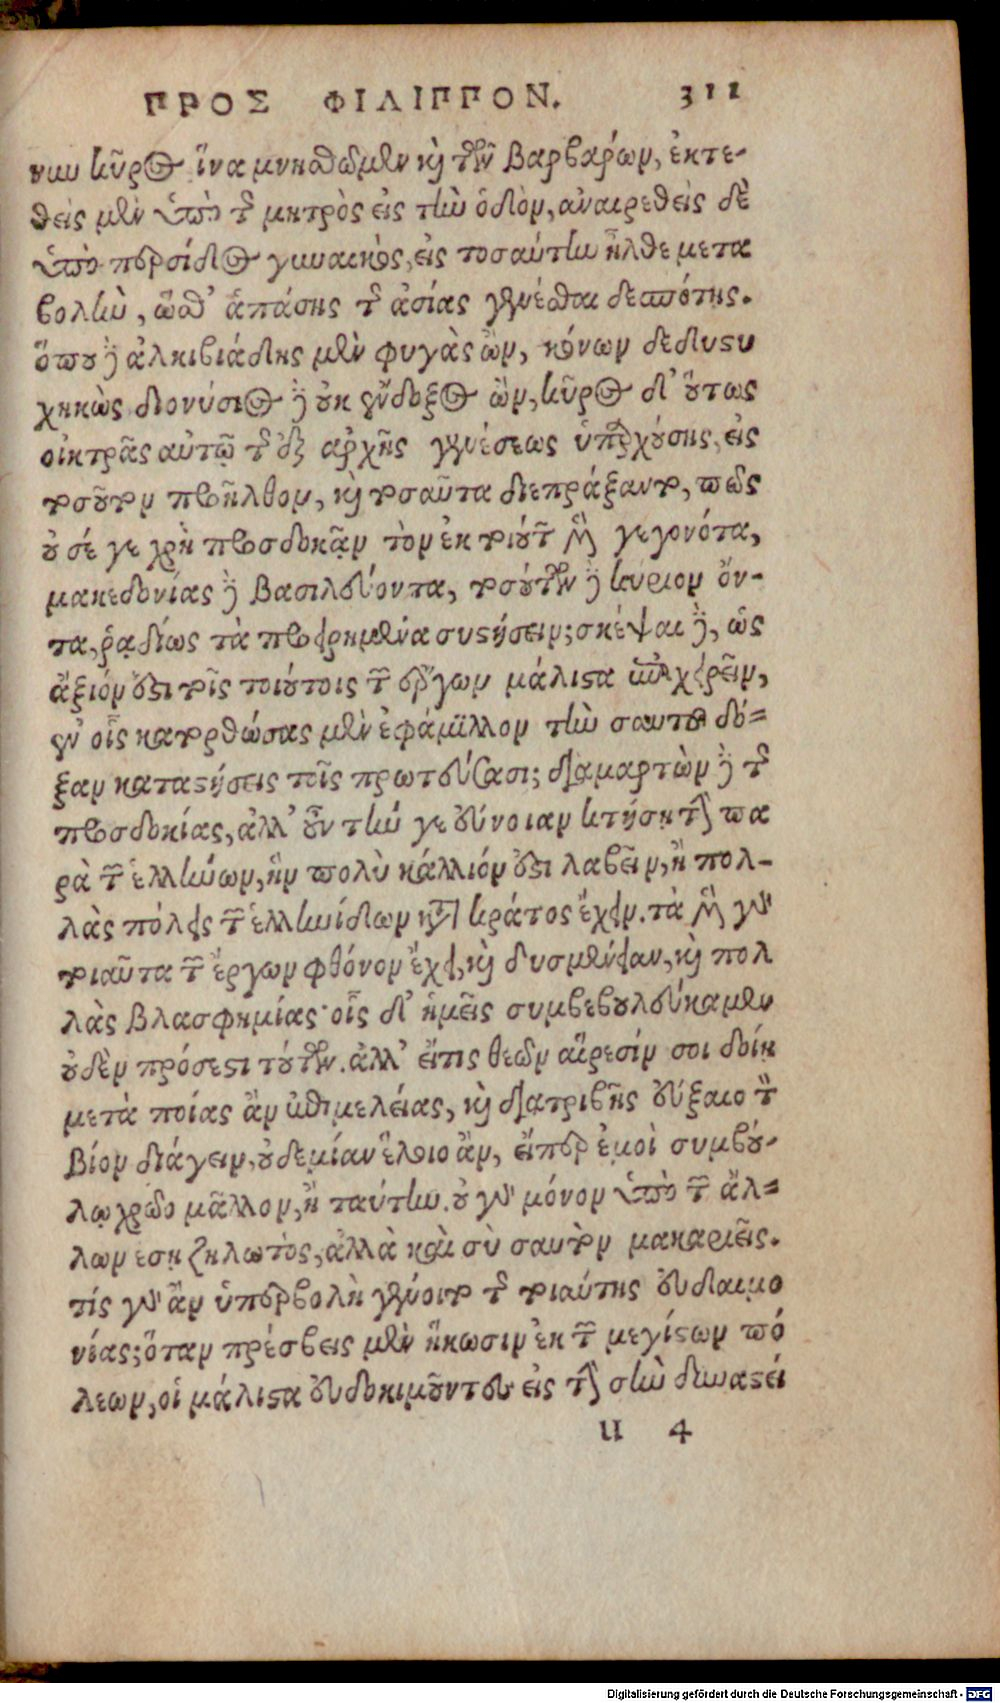 ΠΡΟΣ ΦΙΛΙΠΠΟΝ. 311
νυν κῦρος ἵνα μνησθῶμεν καὶ τῶν βαρβάρων, ἐκτε-
θεὶς μὲν ὑπὸ τῆς μητρὸς εἰς τὴν ὁδὸν, ἀναιρεθεὶς δὲ
ὑπὸ περσίδος γυναικὸς, εἰς τοσαύτην ἦλθε μετα
βολὴν, ὥσθ' ἁπάσης τῆς ἀσίας γενέσθαι δεσπότης.
ὅπου δὲ ἀλκιβιάδης μὲν φυγὰς ὢν, κόνων δεδυστυ
χηκὼς διονύσιος δὲ οὐκ ἔνδοξος ὢν, κῦρος δ' οὕτως
οἰκτρᾶς αὐτῷ τῆς ἐξ ἀρχῆς γενέσεως ὑπαρχούσης, εἰς
τοσοῦτον προῆλθον, καὶ τοσαῦτα διεπράξαντο, πῶς
οὐ σέ γε χρὴ προσδοκᾷν τὸν ἐκ τοιούτων μὲν γεγονότα,
μακεδονίας δὲ βασιλεύοντα, τοσούτων δὲ κύριον ὄν-
τα, ῥᾳδίως τὰ προειρημένα συστήσειν; σκέψαι δὲ, ὡς
ἄξιόν ἐστι τοῖς τοιούτοις τῶν ἔργων μάλιστα ἐπιχειρεῖν,
ἐν οἷς κατορθώσας μὲν ἐφάμιλλον τὴν σαυτοῦ δό=
ξαν καταστήσεις τοῖς πρωτεύσασι; διαμαρτὼν δὲ τῆς
προσδοκίας, ἀλλ' οὖν τήν γε εὔνοιαν κτήσῃ τὴν πα
ρὰ τῶν ἑλλήνων, ἣν πολὺ κάλλιόν ἐστι λαβεῖν, ἢ πολ-
λὰς πόλεις τῶν ἑλληνίδων κατὰ κράτος ἔχειν. τὰ μὲν γὰρ
τοιαῦτα τῶν ἔργων φθόνον ἔχει, καὶ δυσμένειαν, καὶ πολ
λὰς βλασφημίας· οἷς δ' ἡμεῖς συμβεβουλεύκαμεν
οὐδὲν πρόσεστι τούτων. ἀλλ' εἴτις θεῶν αἵρεσίν σοι δοίη
μετὰ ποίας ἂν ἐπιμελείας, καὶ διατριβῆς εὔξαιο τὸν
βίον διάγειν, οὐδεμίαν ἕλοιο ἂν, εἴπερ ἐμοὶ συμβού-
λῳ χρῷο μᾶλλον, ἢ ταύτην. οὐ γὰρ μόνον ὑπὸ τῶν ἄλ=
λων ἔσῃ ζηλωτὸς, ἀλλὰ καὶ σὺ σαυτὸν μακαριεῖς.
τίς γὰρ ἂν ὑπερβολὴ γένοιτο τῆς τοιαύτης εὐδαιμο
νίας; ὅταν πρέσβεις μὲν ἥκωσιν ἐκ τῶν μεγίστων πό
λεων, οἱ μάλιστα εὐδοκιμοῦντες εἰς τὴν σὴν δυναστεί
u 4
Digitalisierung gefördert durch die Deutsche Forschungsgemeinschaft - DFG